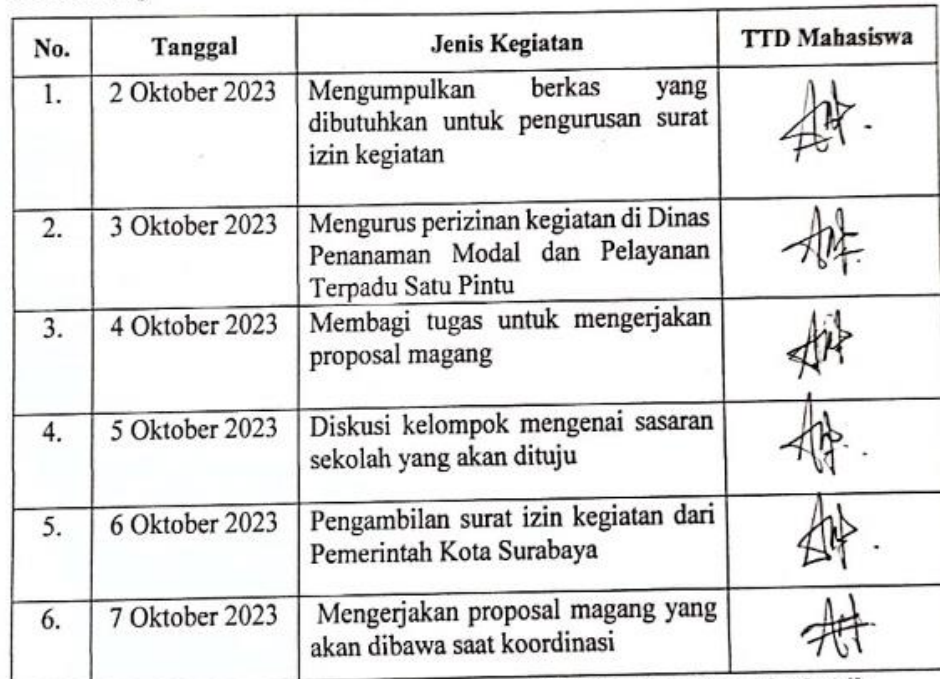 No. Tanggal Jenis Kegiatan TTD Mahasiswa
1. 2 Oktober 2023 Mengumpulkan berkas yang
dibutuhkan untuk pengurusan surat
izin kegiatan
2. 3 Oktober 2023 Mengurus perizinan kegiatan di Dinas
Penanaman Modal dan Pelayanan
Terpadu Satu Pintu
3. 4 Oktober 2023 Membagi tugas untuk mengerjakan
proposal magang
4. 5 Oktober 2023 Diskusi kelompok mengenai sasaran
sekolah yang akan dituju
5. 6 Oktober 2023 Pengambilan surat izin kegiatan dari
Pemerintah Kota Surabaya
6. 7 Oktober 2023 Mengerjakan proposal magang yang
akan dibawa saat koordinasi